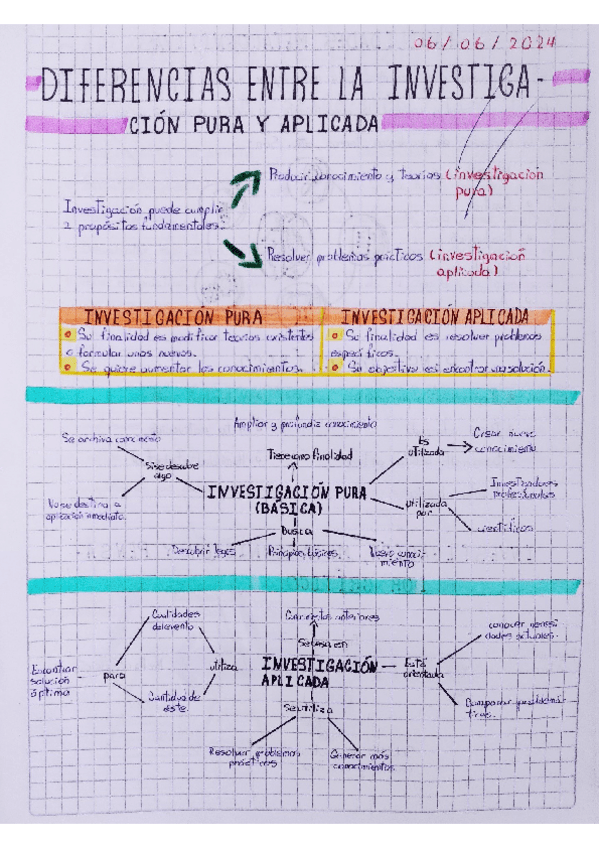 06/06/2024
DIFERENCIAS ENTRE LA INVESTIGA-
CIÓN PURA Y APLICADA
Producir conocimiento y teorías (investigación
pura)
Investigación puede cumplir
2 propósitos fundamentales:
Resolver problemas prácticos (investigación
aplicada)
INVESTIGACIÓN PURA
Su finalidad es modificar teorías existentes
o formular unas nuevas.
Se quiere aumentar los conocimientos.
INVESTIGACIÓN APLICADA
Su finalidad es resolver problemas
específicos.
Su objetivo es encontrar
Ampliar y profundizar conocimiento
Se archiva
Si se descubre
algo
Tiene como finalidad
Es
utilizada
Crear nuevo
conocimiento
INVESTIGACIÓN PURA
(BÁSICA)
No se destina a
aplicación inmediato.
utilizada
por
Investigadores
profesionales
científicos
Busca
Descubrir leyes
Principios básicos
Cualidades
del evento
Se basa en
conocer
dades actuales.
Encontrar
solución
óptima
para
utiliza
INVESTIGACIÓN
APLICADA
Está
orientada
Cantidad de
éste.
Se utiliza
Resolver problemas
prácticos
Generar más
conocimientos.